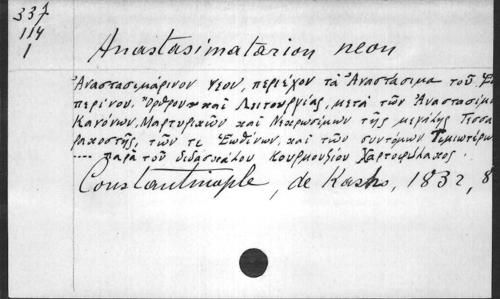 337
114
1
Anastasimatarion neon
Ἀναστασιμάριον νεον, περιέχον τὰ Ἀναστάσιμα τοῦ Ἑσ
περινου. Ὄρθρου καὶ Λειτουργίας, μετὰ τῶν Ἀναστασίμ
Κανόνων, Μαρτυρικῶν καὶ Νεκρωσίμων τῆς μεγάλης Τεσσα
ρακοστῆς, τῶν τε Ἑωθίνων, καὶ τῶν συντόμων Τιμιωτέρω
---- παρὰ τοῦ διδασκάλου Χουρμουζίου Χαρτοφύλακος.
Constantinople, de Kastro, 1832, 8